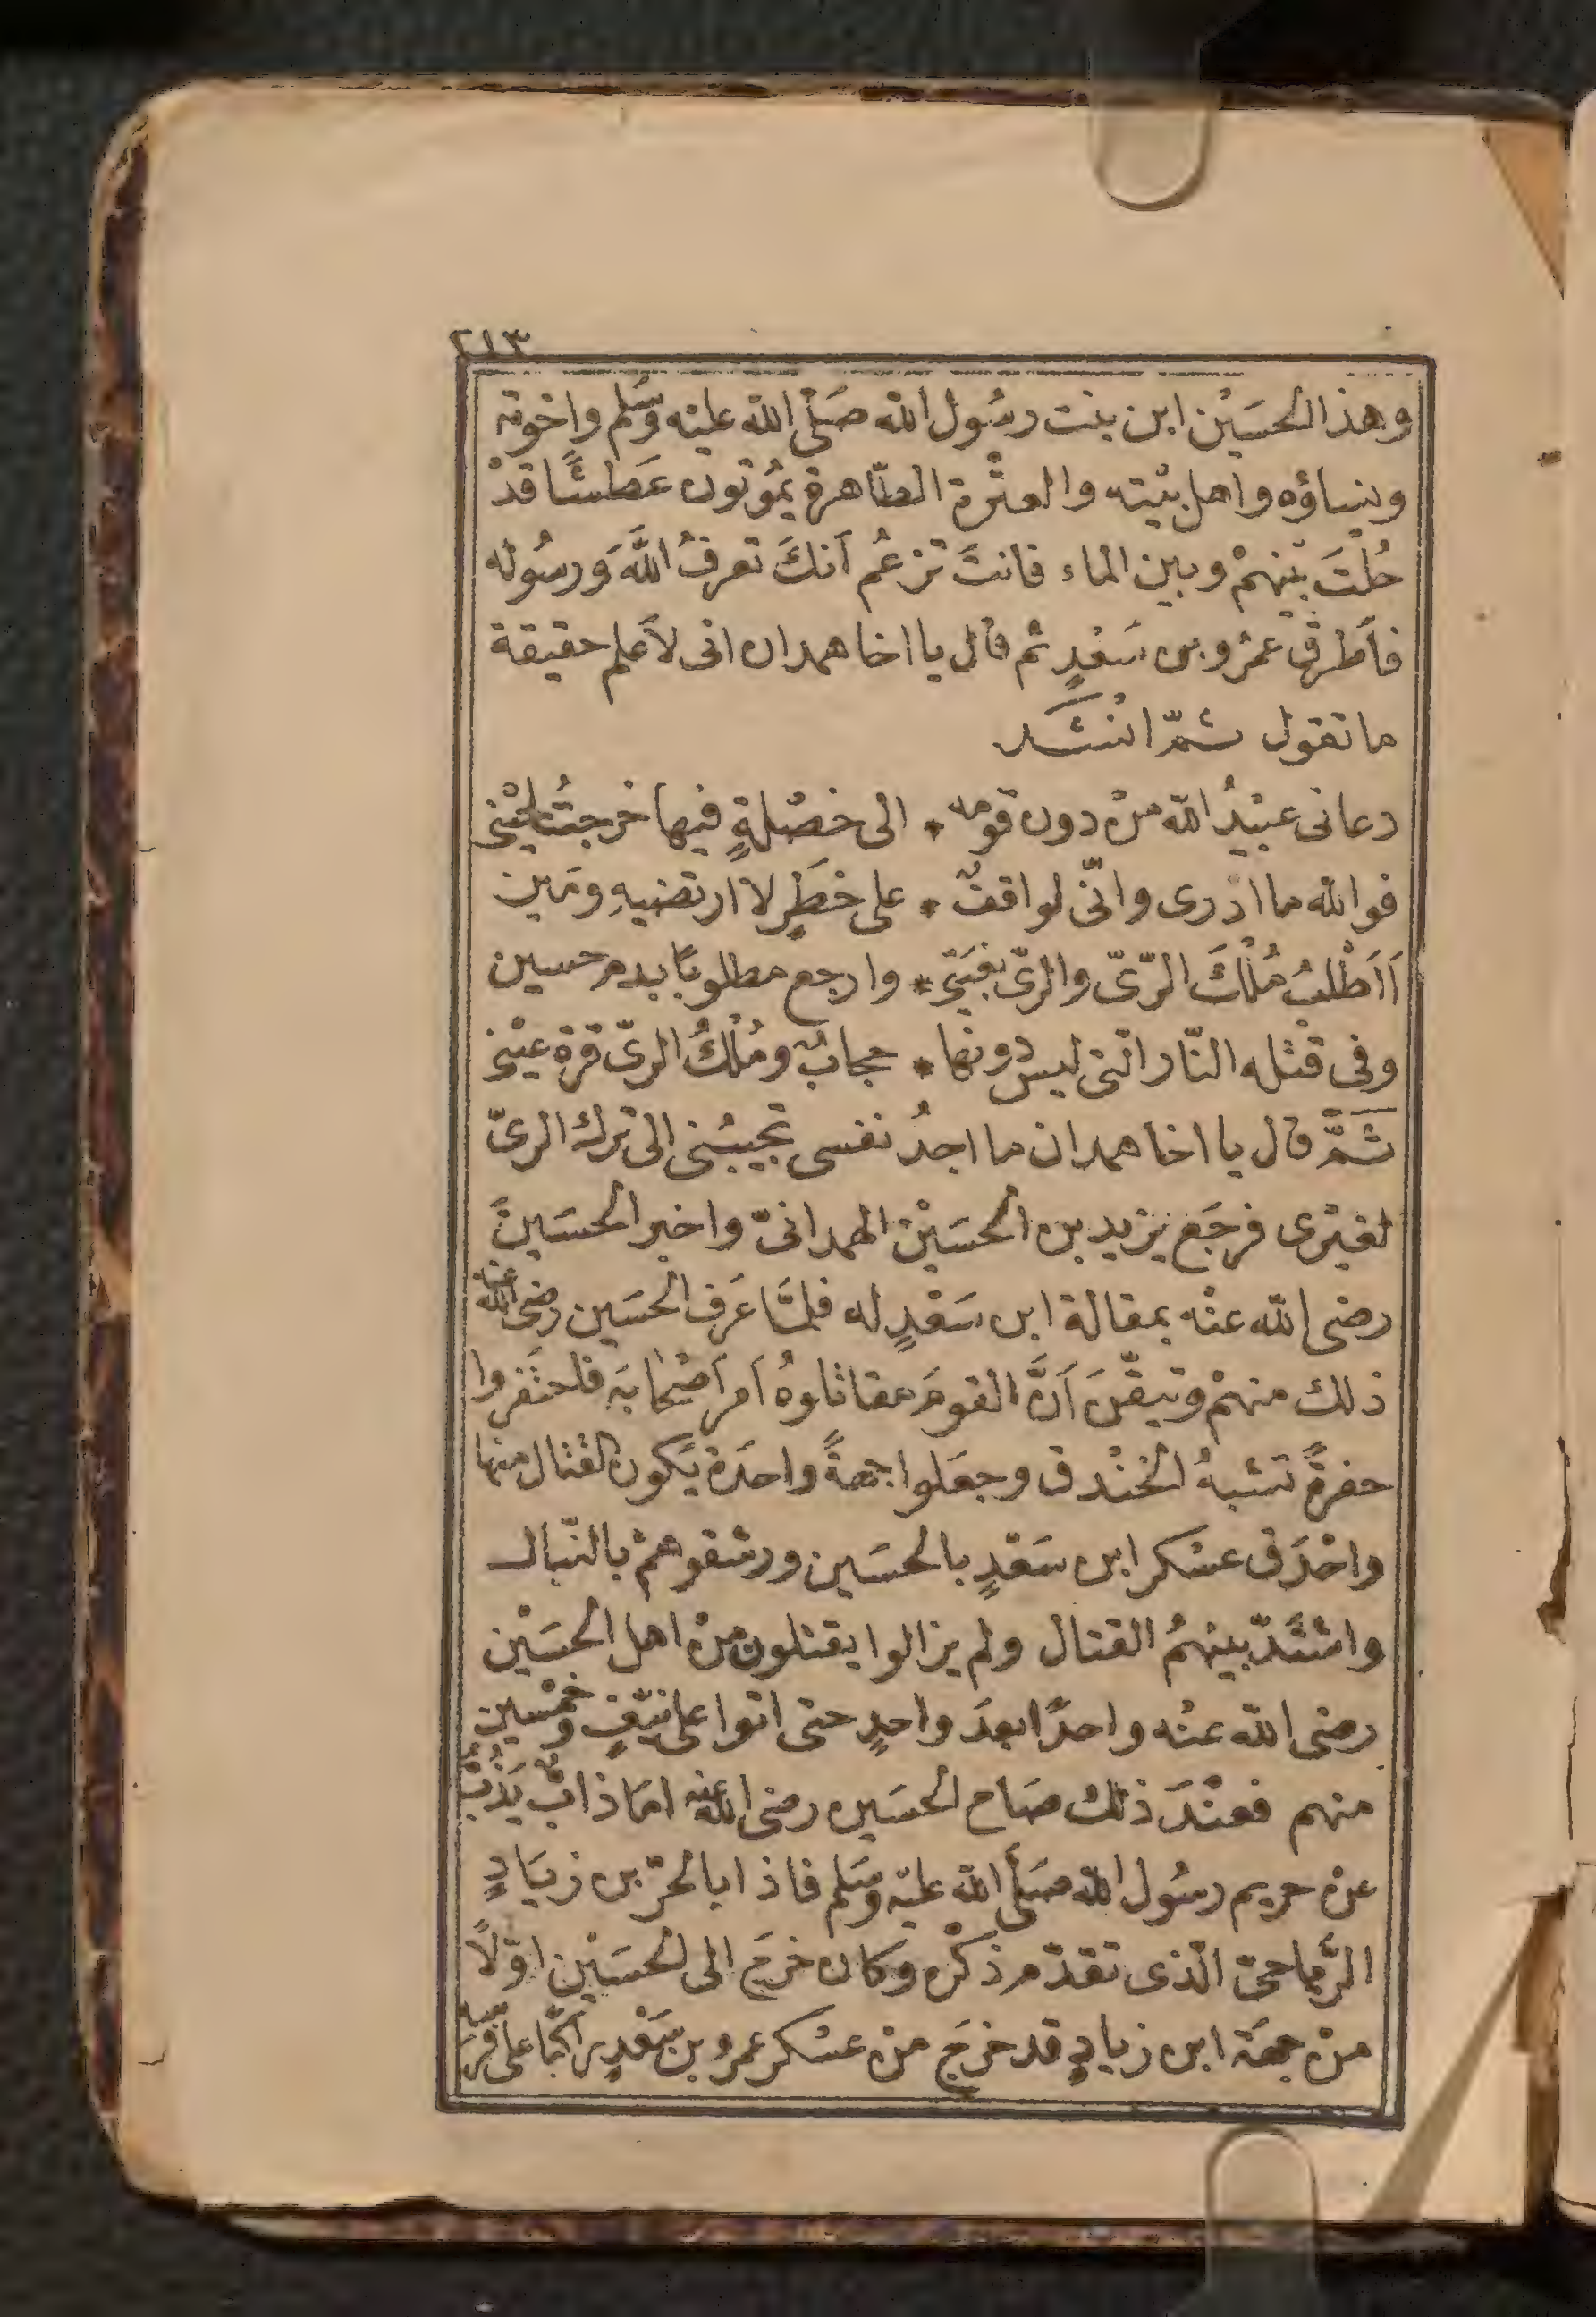 ٢١٣
وهذا الحسَيْن ابن بنت رسُول الله صَلّى الله عليْه وسَلم واخوته
ونساؤه واهل بيْته والعتْرة الطّاهرة يمُوتون عَطشًا قدْ
حُلْتَ بيْنهمْ وبين الماء فانتَ تزعُم اَنكَ تعرفُ اللَّهَ وَرسُوله
فاَطرقَ عمرْو بن سَعْدٍ ثم قال يا اخا همدان انى لاَعلم حقيقة
ما تقول ثمّ انْشَد
دعانى عبيْدُ الله منْ دون قومه * الى خصْلةٍ فيها خرجتُ لحيْنى
فوالله ما ادرى وانّى لواقفٌ * على خطَرٍ لا ارتضيهِ ومَين
اَاَطْلبُ مُلْكَ الرّىّ والرىّ بغيَتى * وارجع مطلوبًا بدم حسين
وفى قتْله النّار التى ليس دونها * حجابٌ ومُلْكُ الرىّ قرة عيْنى
ثَمَّ قال يا اخا همدان ما اجدُ نفسى تجيبُنى الى ترك الرىّ
لغيْرى فرجَع يزيد بن الحسَيْن الهمدانىّ واخبر الحسَينَ
رضى الله عنْه بمقالة ابن سَعْدٍ له فلمَّا عَرف الحسَين رضى الله عنه
ذلك منهمْ وتيقّنَ اَنَّ القومَ مقاتلوهُ اَمرَ اَصْحابهَ فاحتَفروا
حفرةً تشبهُ الخنْدق وجعَلوا جهةً واحدَة يَكون القتال منها
واحْدَق عسْكر ابن سَعْدٍ بالحسَين ورشقوهمْ بالنّبال
واشتَدّ بينهمُ القتال ولم يزالوا يقتلون منْ اهل الحسَيْن
رضى الله عنْه واحدًا بعدَ واحدٍ حتى اتوا على نيّفٍ وخمْسين
منهم فعنْدَ ذلك صَاح الحسَين رضى الله عنه امَا ذابٌّ يَذُبُّ
عنْ حريم رسُول الله صَلّى الله عليْه وسَلم فاذا بالحرّ بن زيَادٍ
الرّياحىّ الّذى تقدّم ذكْره وكان خرجَ الى الحسَيْن اوّلاً
منْ جهَة ابن زيادٍ قد خرجَ منْ عسْكر عمرو بن سَعْدٍ راكبًا على فرسه